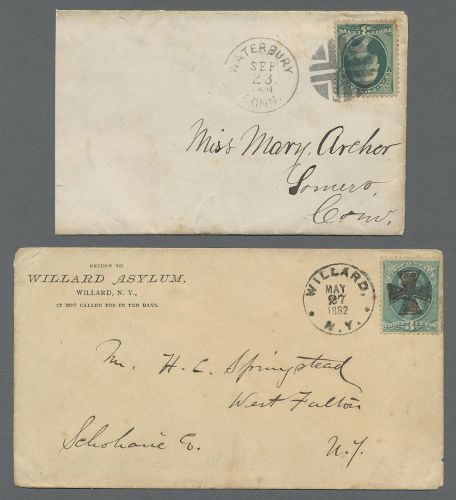 WATERBURY
SEP
23
AM
CONN.
Miss Mary Archer
Somers,
Conn.
RETURN TO
WILLARD ASYLUM,
WILLARD, N. Y.,
IF NOT CALLED FOR IN TEN DAYS.
WILLARD,
MAY
27
1882
N.Y.
THREE CENTS
Mr. H. C. Springstead
West Fulton
Schoharie Co.
N.Y.